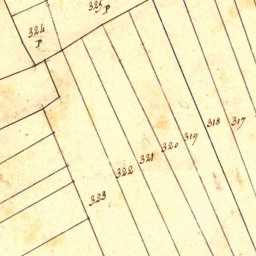 325
P
324
P
317
318
319
320
321
322
323